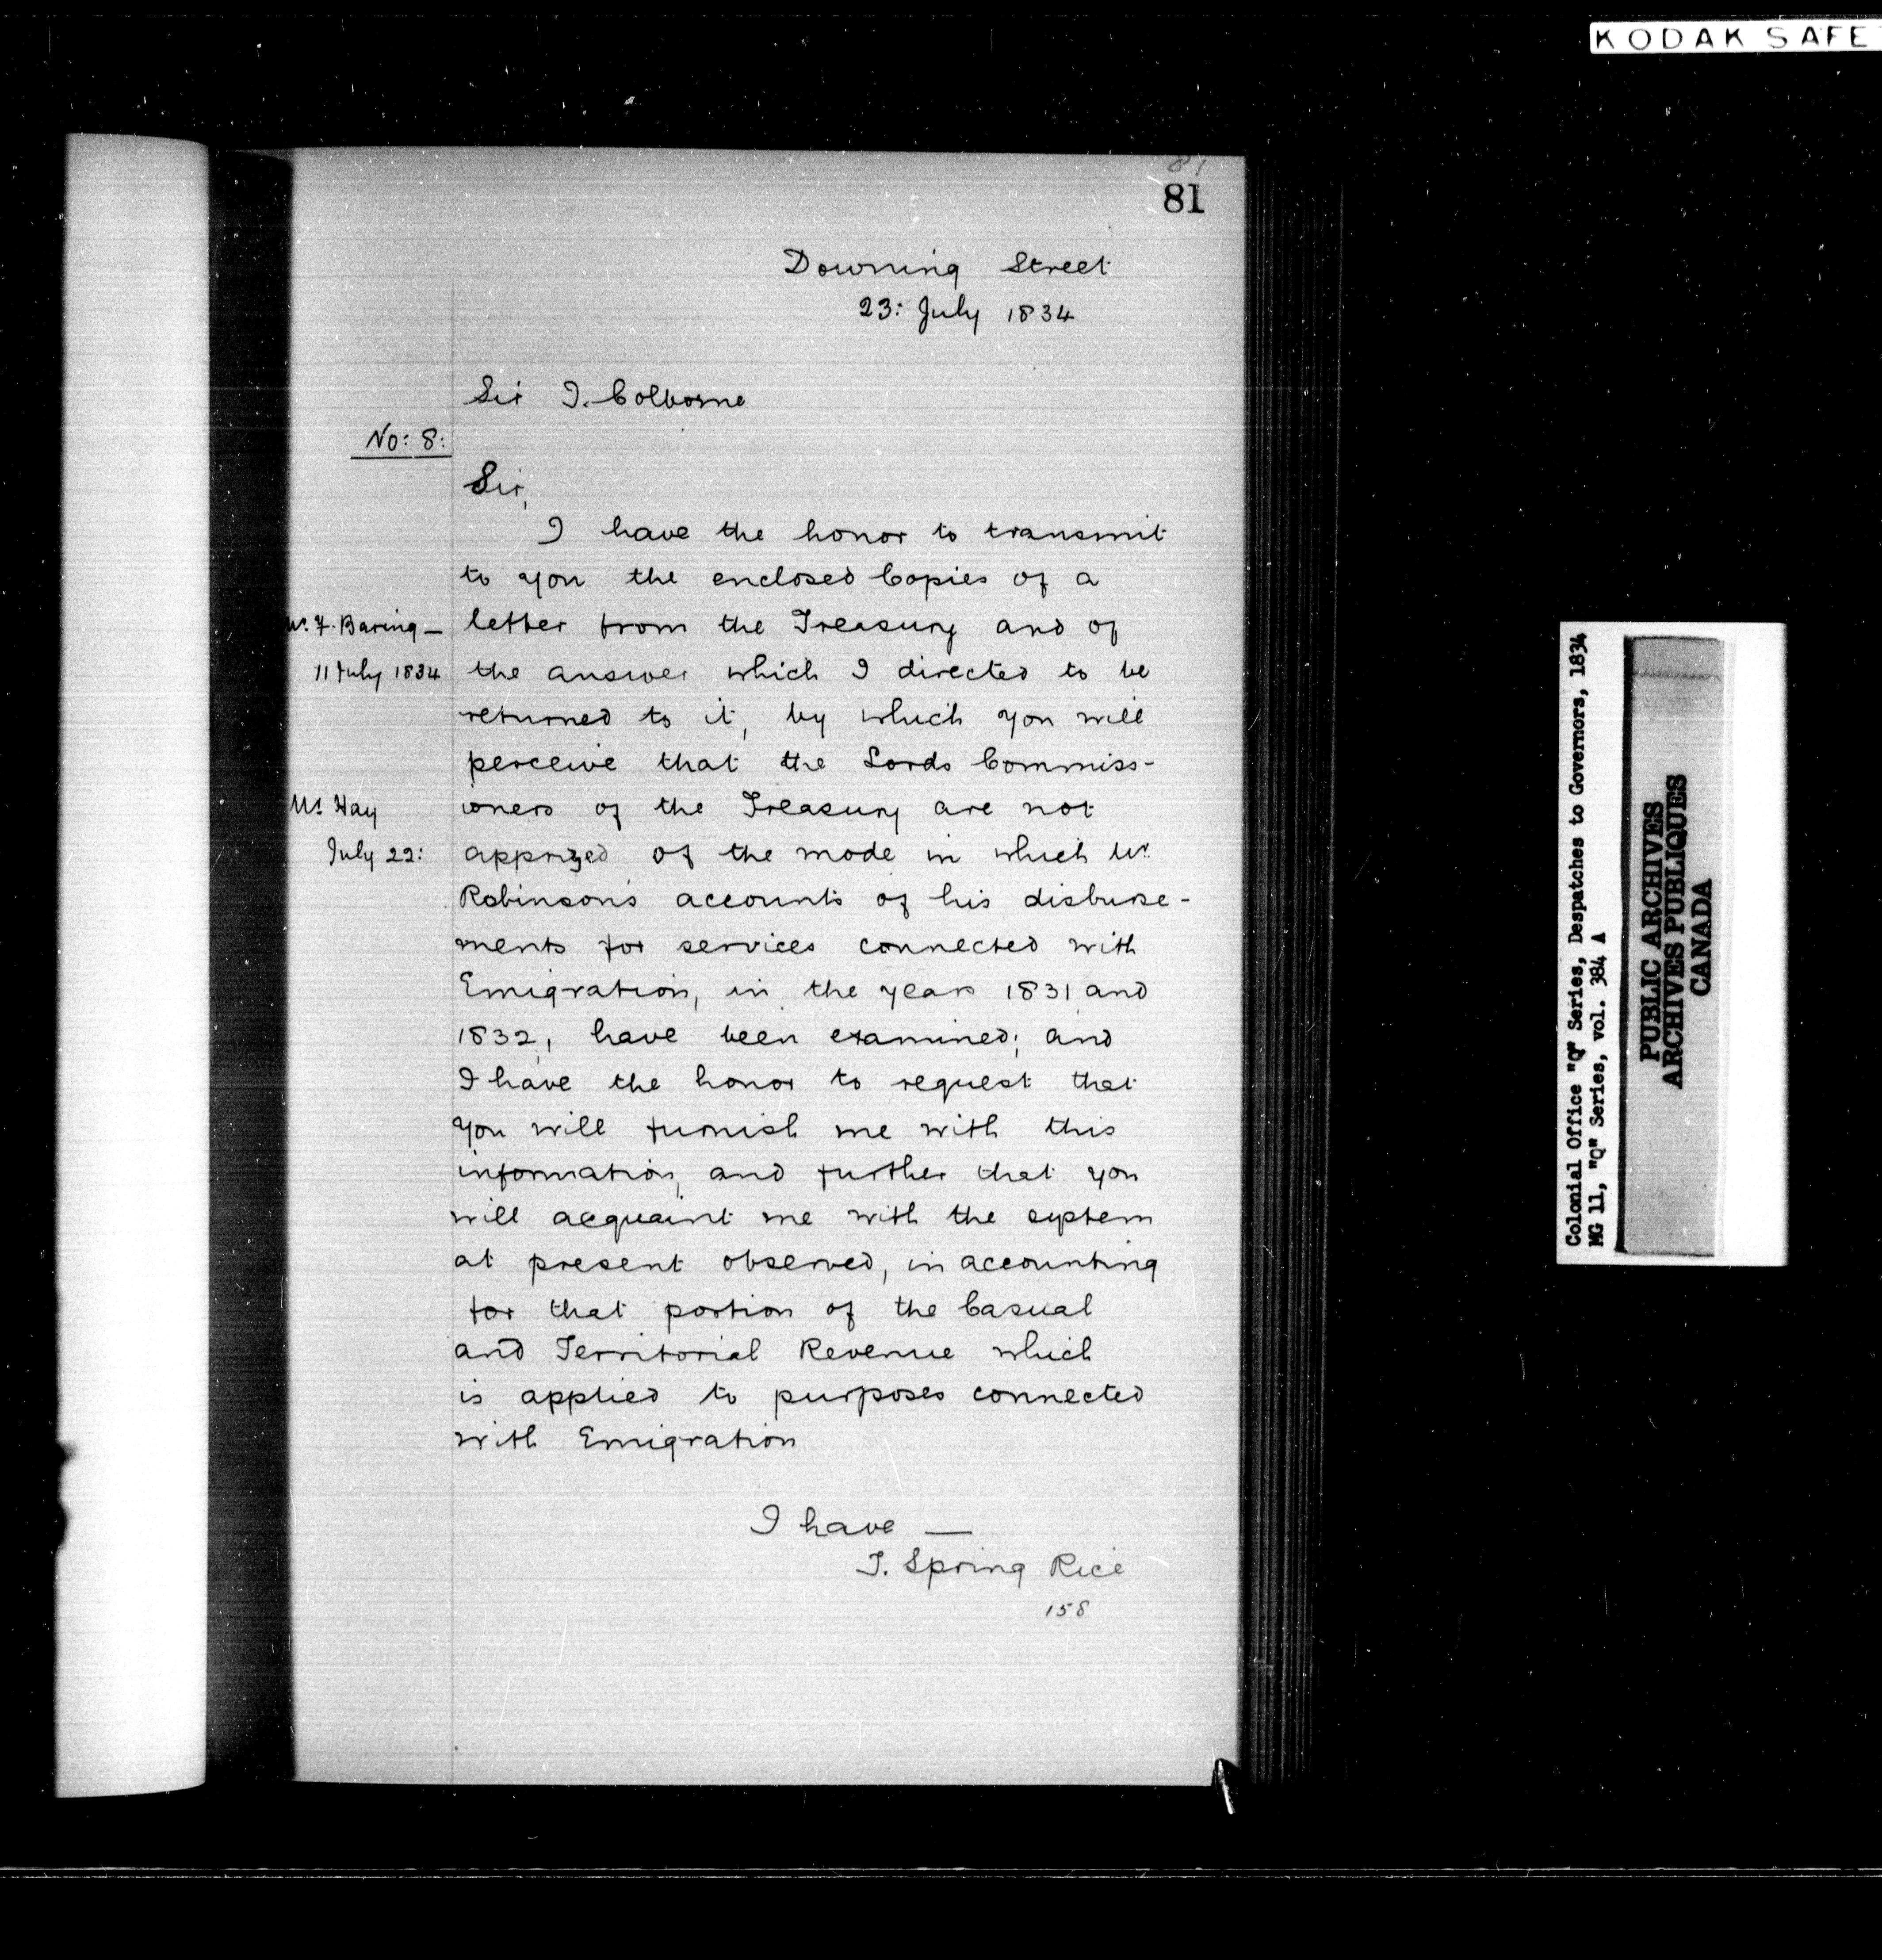 KODAK SAFE
81
81
Downing Street
23: July 1834
Sir J. Colborne
No: 8:
Sir,
I have the honor to transmit
to you the enclosed Copies of a
Mr. F. Baring —
letter from the Treasury and of
11 July 1834
the answer which I directed to be
returned to it, by which you will
perceive that the Lords Commiss-
Mr. Hay
ioners of the Treasury are not
July 22:
apprized of the mode in which Mr.
Robinson's accounts of his disburse-
ments for services connected with
Emigration, in the years 1831 and
1832, have been examined; and
I have the honor to request that
you will furnish me with this
information, and further that you
will acquaint me with the system
at present observed, in accounting
for that portion of the Casual
and Territorial Revenue which
is applied to purposes connected
with Emigration
I have —
T. Spring Rice
158
Colonial Office "Q" Series, Despatches to Governors, 1834
MG 11, "Q" Series, vol. 384 A
PUBLIC ARCHIVES
ARCHIVES PUBLIQUES
CANADA